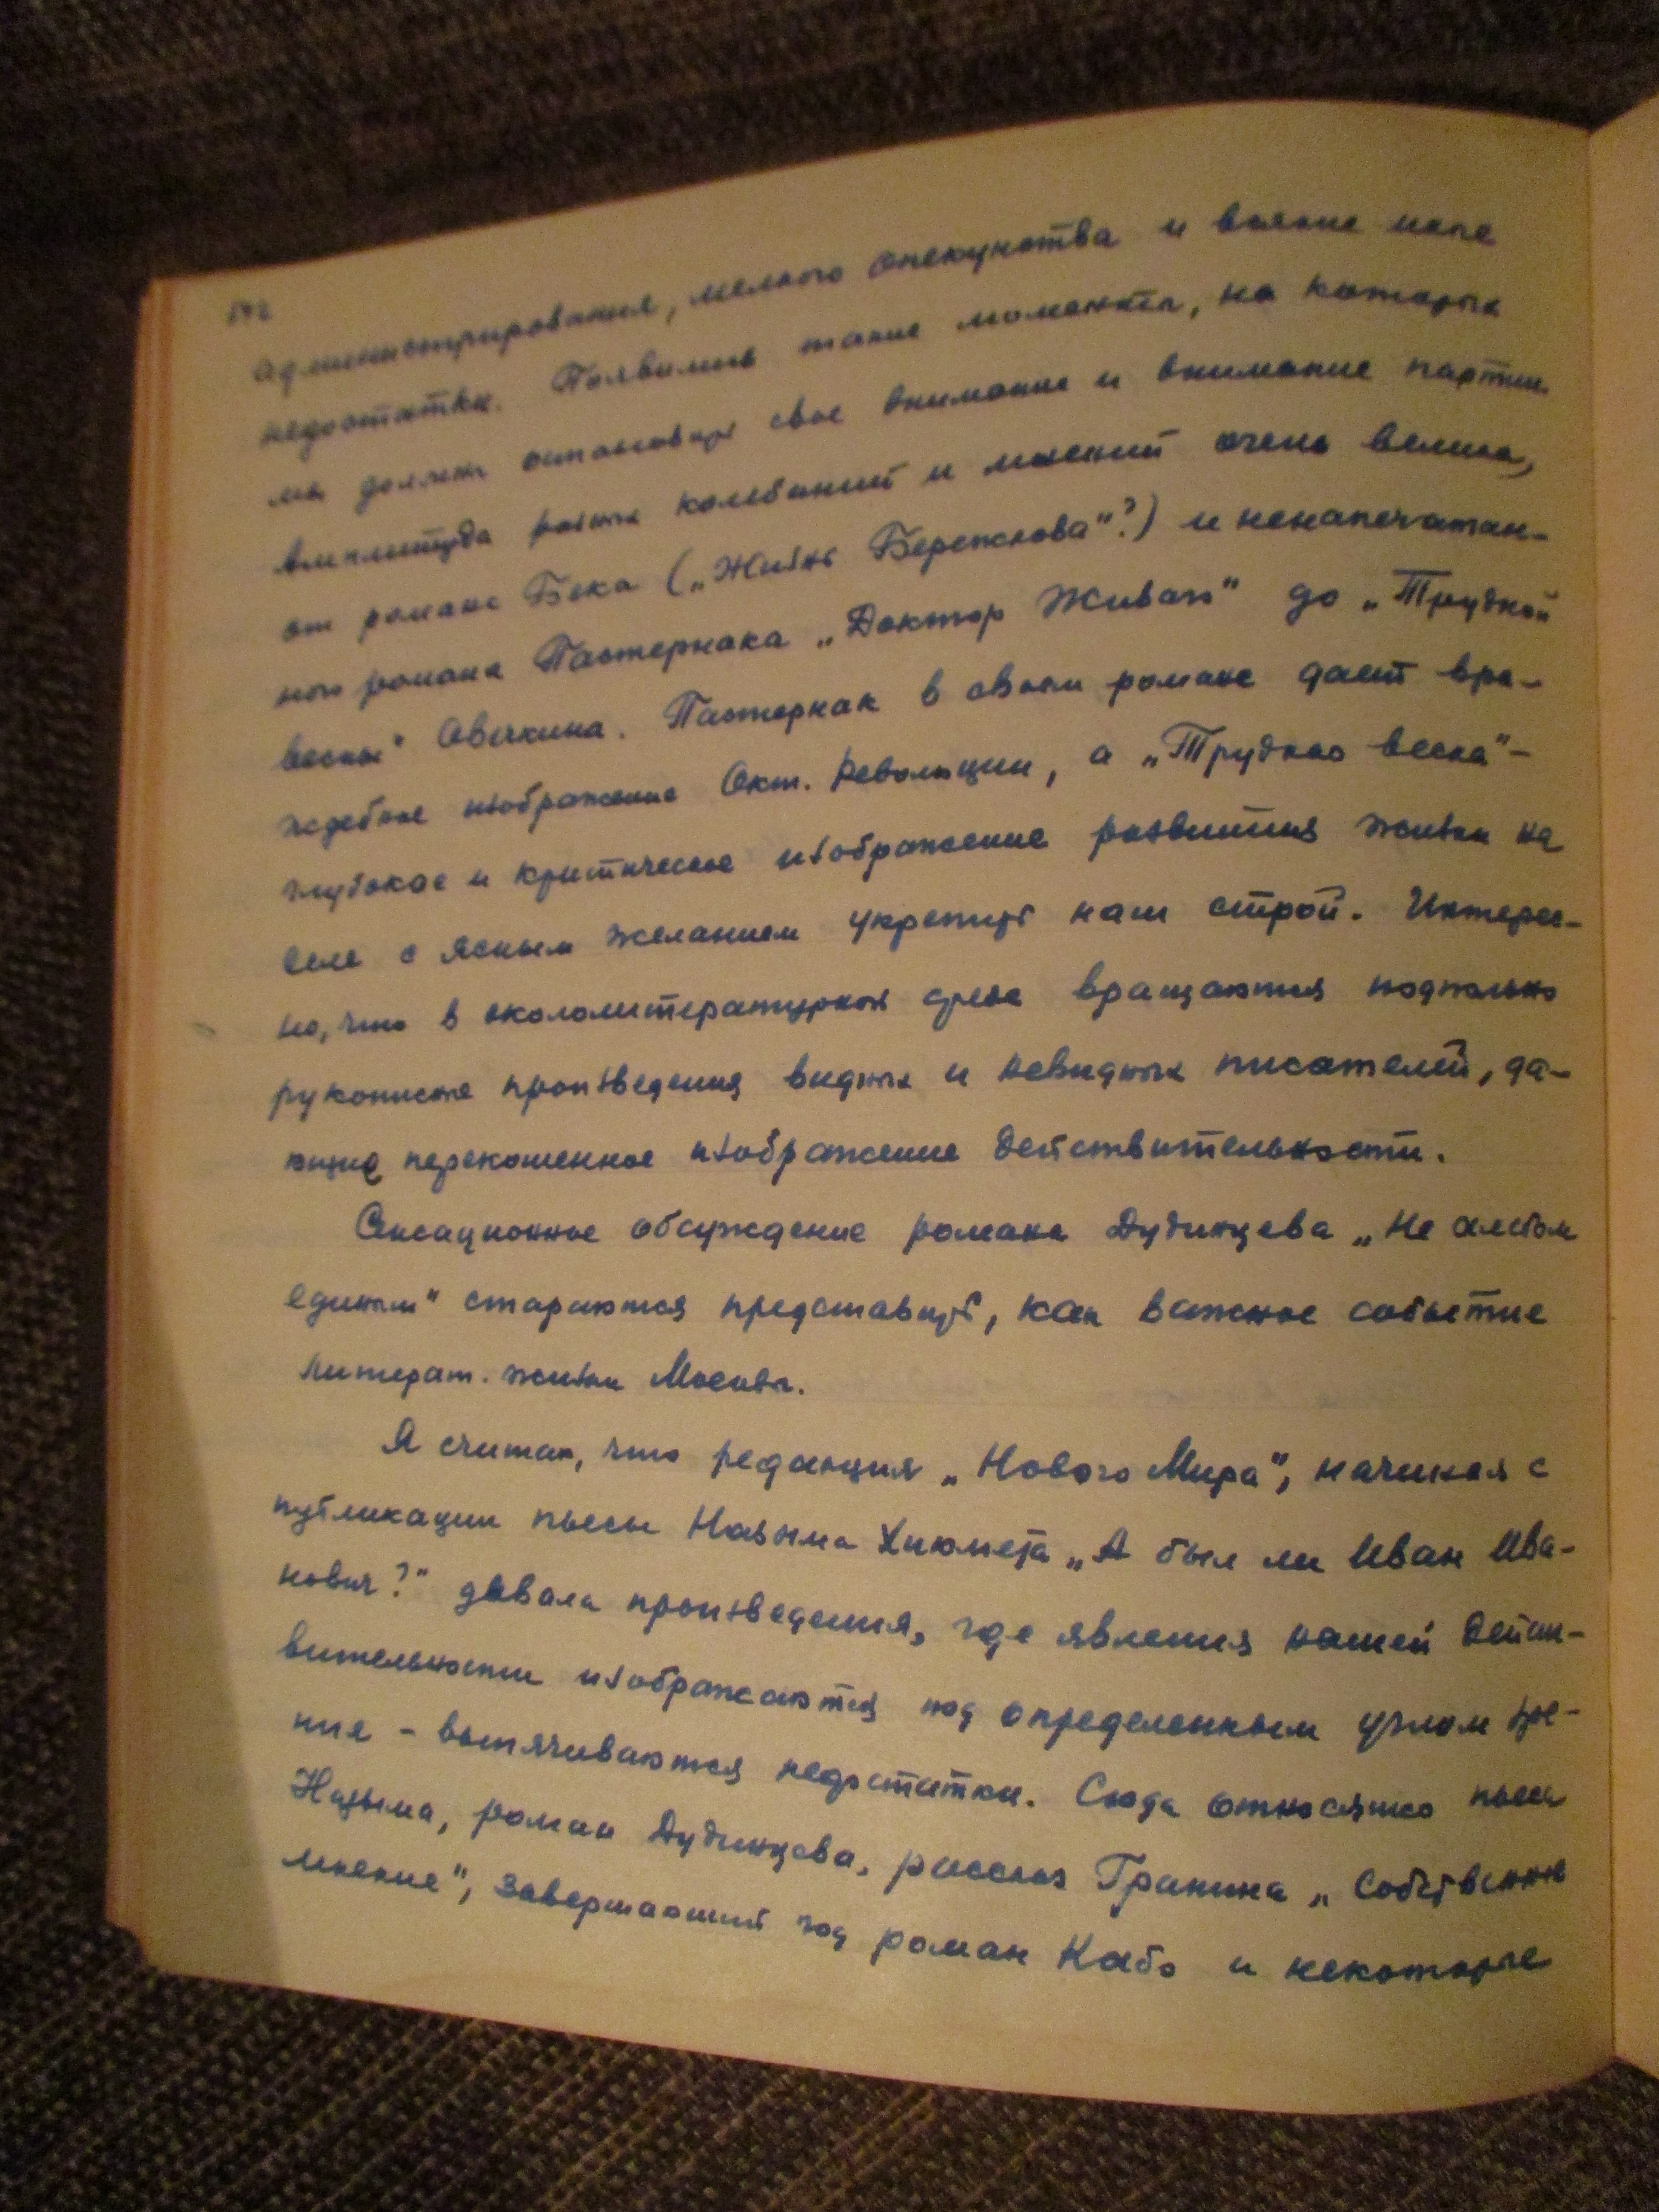 администрирования, мелкого опекунства и всякие иные
недостатки. Появились такие моменты, на которых
мы должны остановить свое внимание и внимание партии.
Амплитуда разных колебаний и мнений очень велика,
от романа Бека („Жизнь Бережкова"?) и ненапечатан-
ного романа Пастернака „Доктор Живаго" до „Трудной
весны" Овечкина. Пастернак в своем романе дает вра-
ждебное изображение Окт. Революции, а „Трудная весна"-
глубокое и критическое изображение развития жизни на
селе с ясным желанием укрепить наш строй. Интерес-
но, что в окололитературной среде вращаются подпольно
рукописные произведения видных и невидных писателей, да-
ющие перекошенное изображение действительности.
Сенсационное обсуждение романа Дудинцева „Не хлебом
единым" стараются представить, как важное событие
литерат. жизни Москвы.
Я считаю, что редакция „Нового Мира", начиная с
публикации пьесы Назыма Хикмета „А был ли Иван Ива-
нович?" давала произведения, где явления нашей дейст-
вительности изображаются под определенным углом зре-
ния - выпячиваются недостатки. Сюда относятся пьеса
Назыма, роман Дудинцева, рассказ Гранина „Собственное
мнение", завершающий год роман Кабо и некоторые